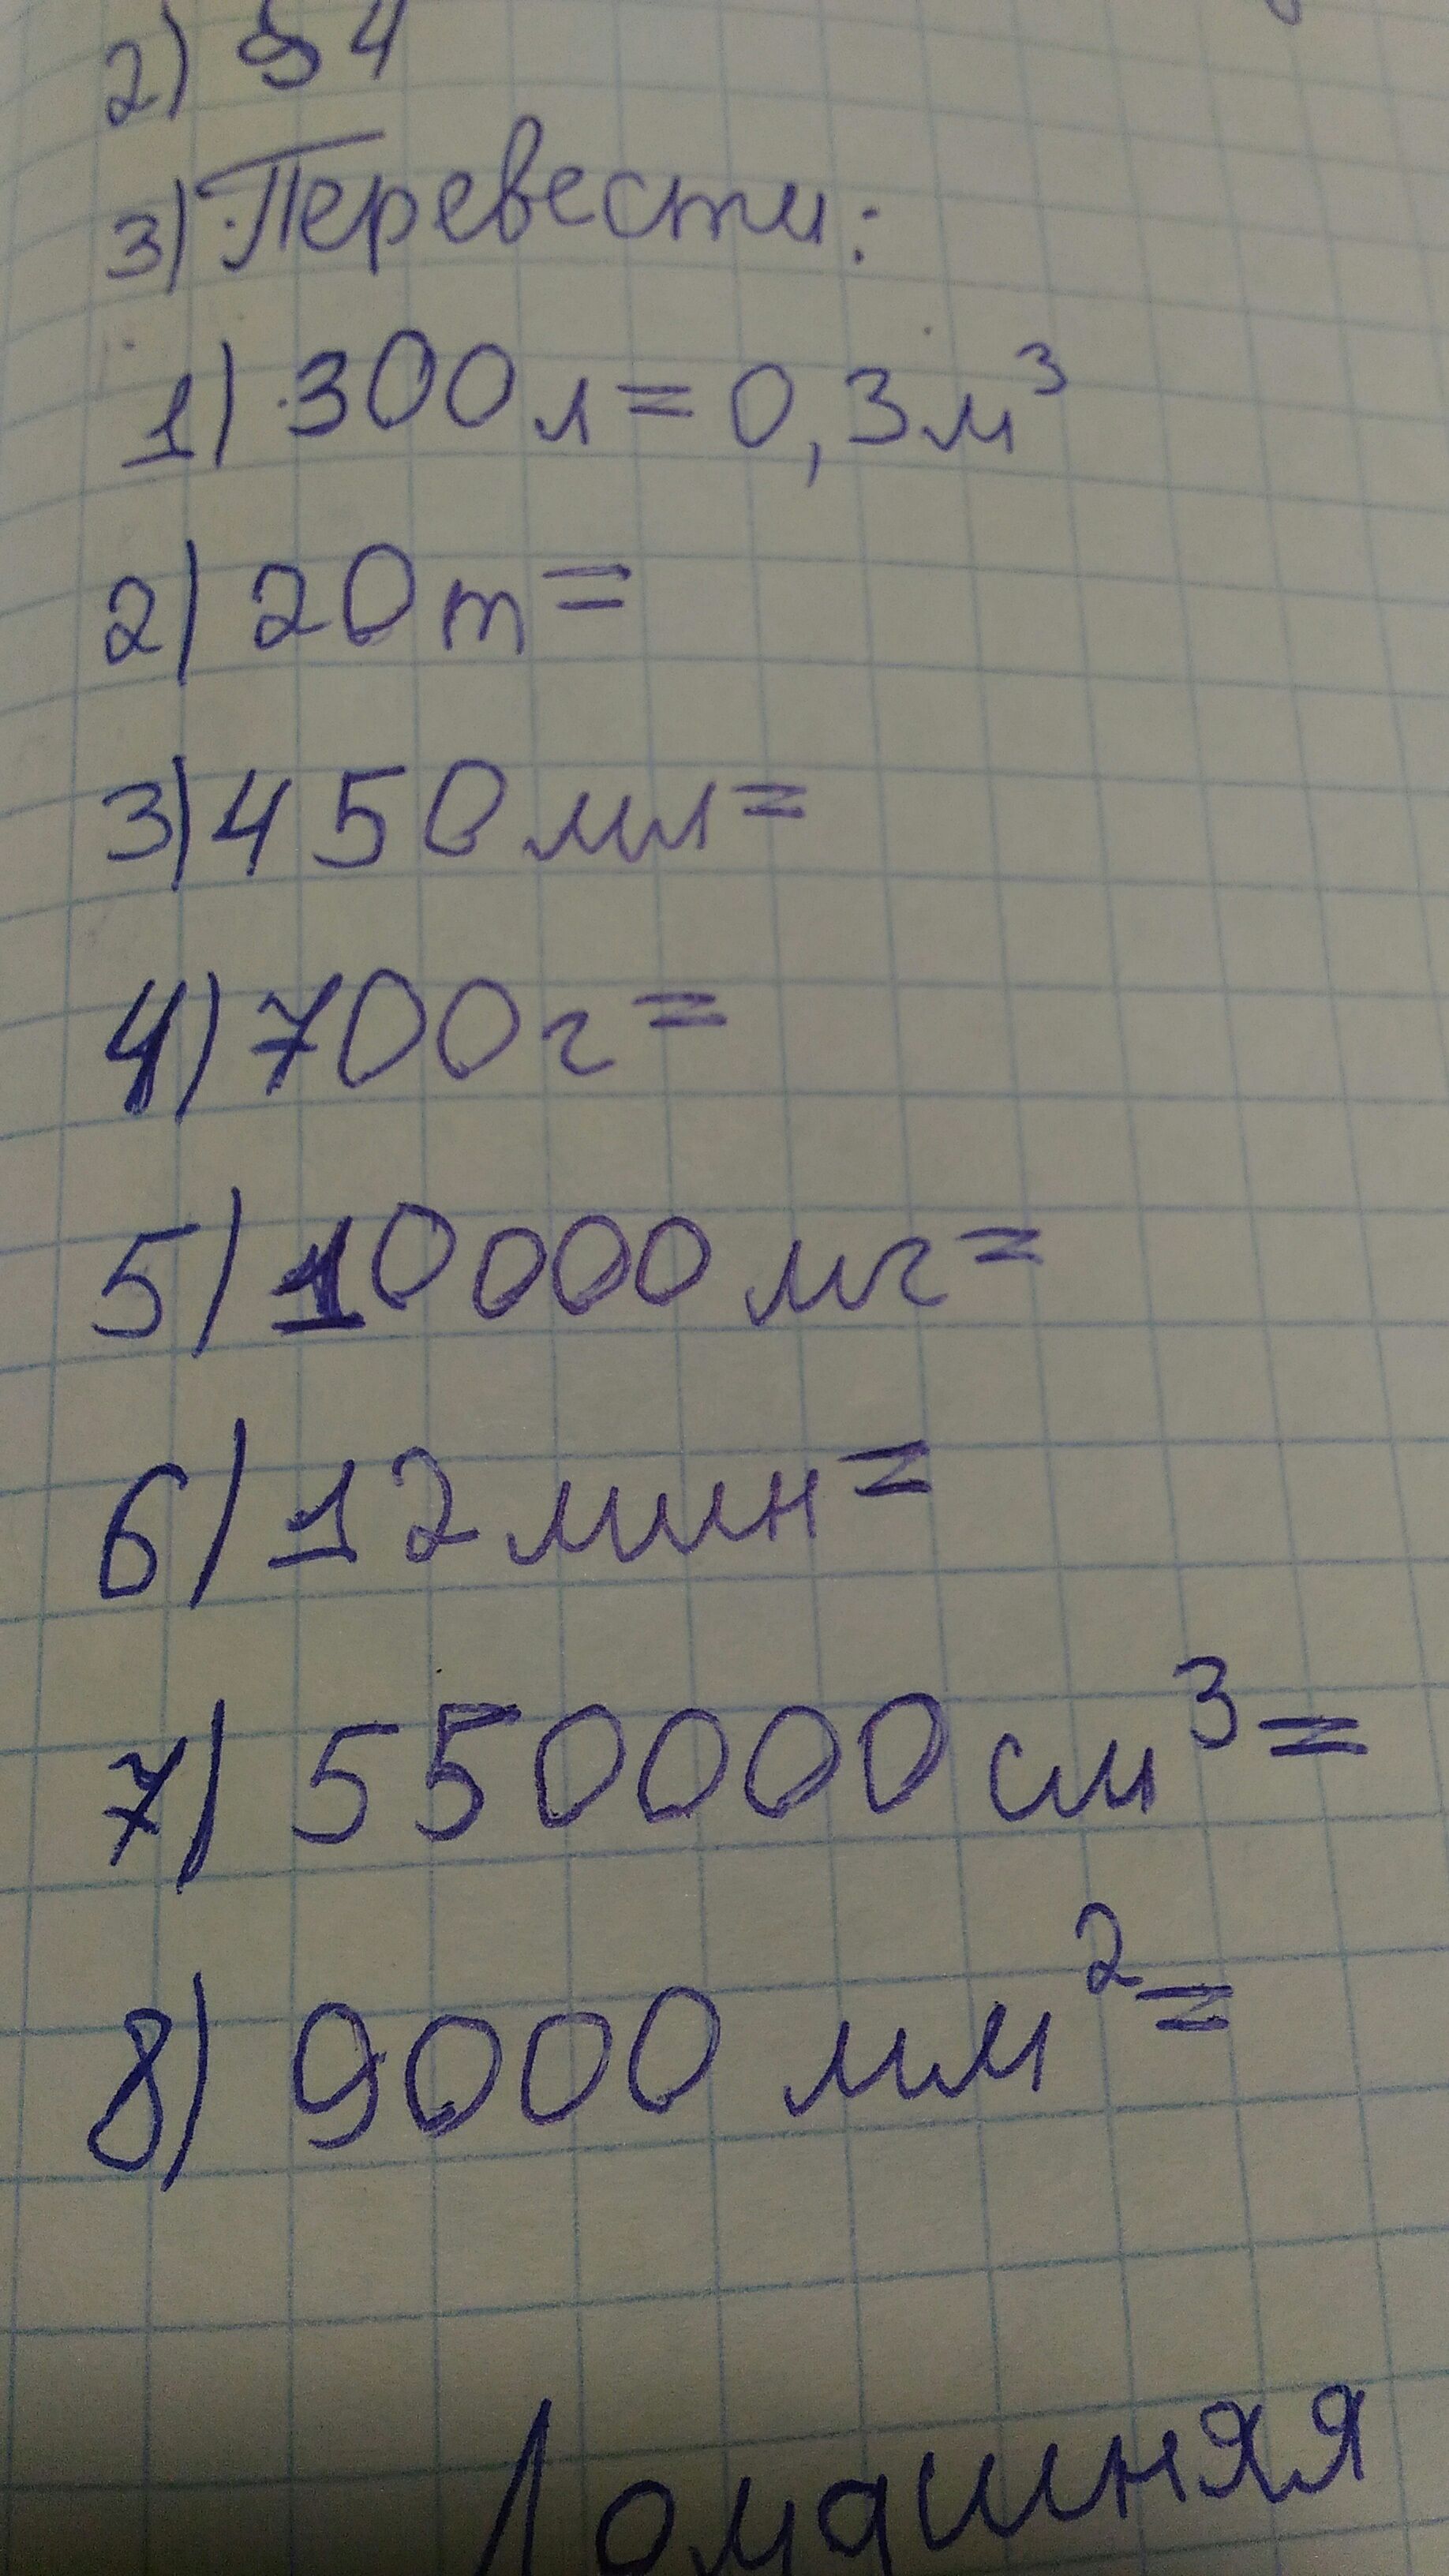 2) § 4
3) Перевести:
1) 300 л = 0,3 м³
2) 20 т =
3) 450 мл =
4) 700 г =
5) 10000 мг =
6) 12 мин =
7) 550000 см³ =
8) 9000 мм² =
Домашняя